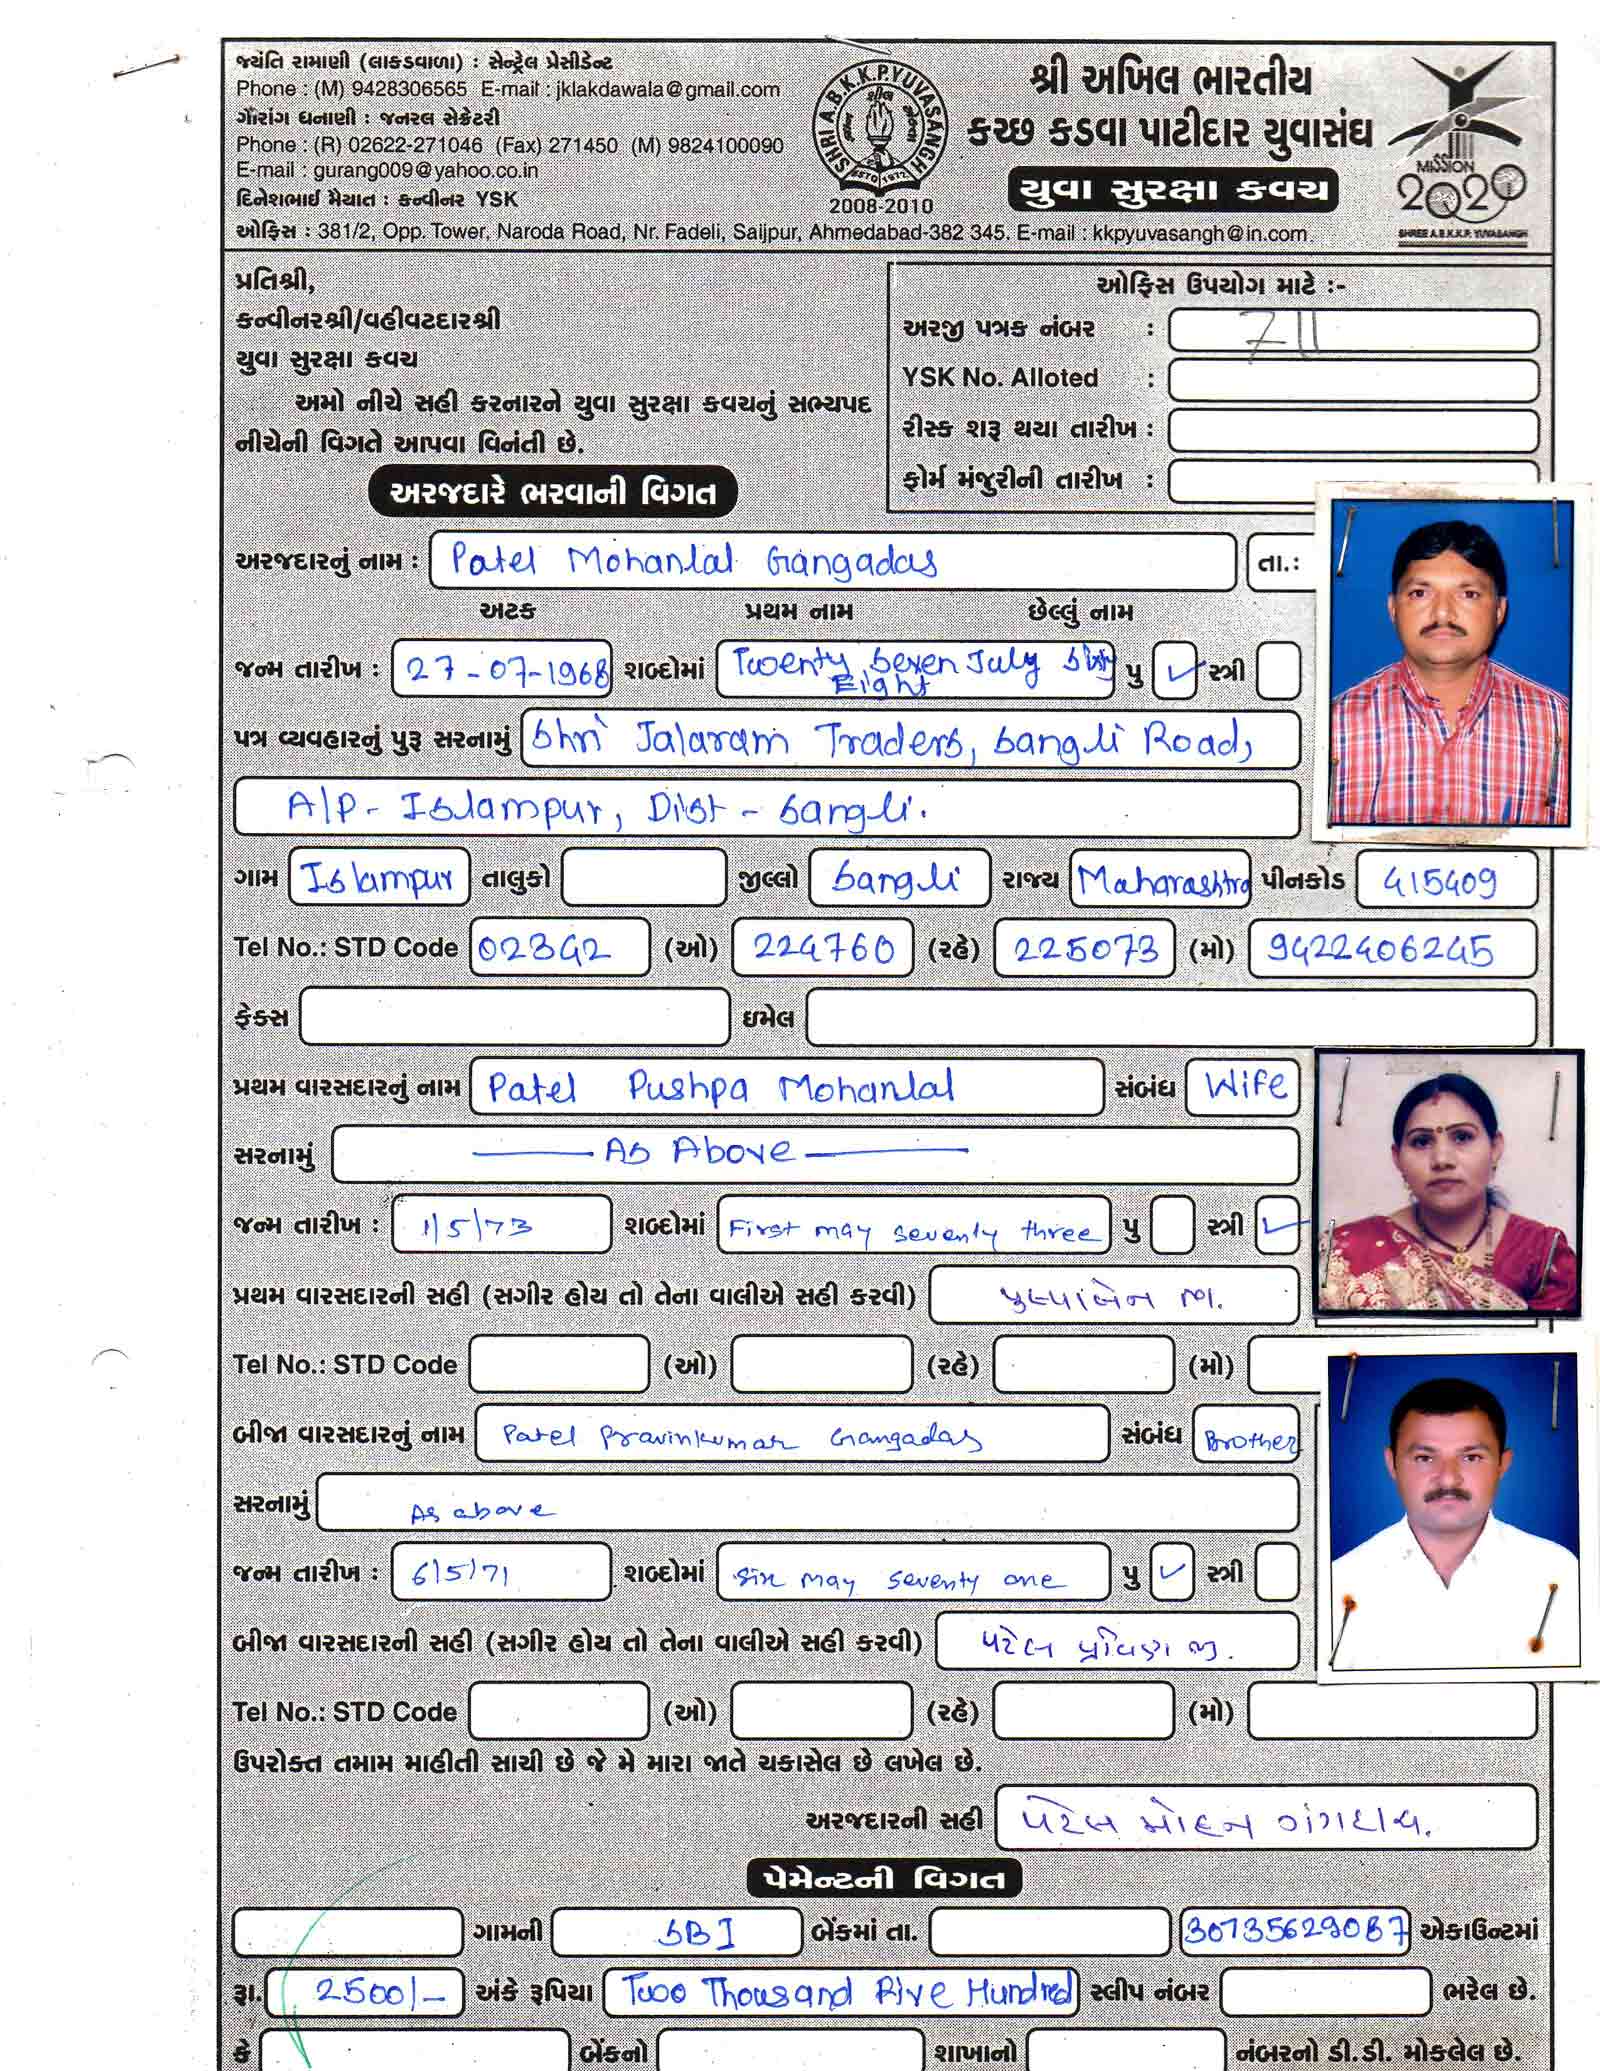 જયંતિ રામાણી (લાકડવાળા) : સેન્ટ્રેલ પ્રેસીડેન્ટ
Phone : (M) 9428306565 E-mail : jklakdawala@gmail.com
ગૌરાંગ ધનાણી : જનરલ સેક્રેટરી
Phone : (R) 02622-271046 (Fax) 271450 (M) 9824100090
E-mail : gurang009@yahoo.co.in
દિનેશભાઈ મૈયાત : કન્વીનર YSK
ઓફિસ : 381/2, Opp. Tower, Naroda Road, Nr. Fadeli, Saijpur, Ahmedabad-382 345. E-mail : kkpyuvasangh@in.com
SHRI A.B.K.K.P. YUVASANGH
ESTD. 1972
2008-2010
શ્રી અખિલ ભારતીય
કચ્છ કડવા પાટીદાર યુવાસંઘ
યુવા સુરક્ષા કવચ
MISSION
2020
SHREE A.B.K.K.P. YUVASANGH
પ્રતિશ્રી,
કન્વીનરશ્રી/વહીવટદારશ્રી
યુવા સુરક્ષા કવચ
અમો નીચે સહી કરનારને યુવા સુરક્ષા કવચનું સભ્યપદ
નીચેની વિગતે આપવા વિનંતી છે.
ઓફિસ ઉપયોગ માટે :-
અરજી પત્રક નંબર : 711
YSK No. Alloted :
રીસ્ક શરૂ થયા તારીખ :
ફોર્મ મંજુરીની તારીખ :
અરજદારે ભરવાની વિગત
અરજદારનું નામ : Patel Mohanlal Gangadas તા.:
અટક પ્રથમ નામ છેલ્લું નામ
જન્મ તારીખ : 27-07-1968 શબ્દોમાં Twenty Seven July Sixty Eight પુ ✓ સ્ત્રી
પત્ર વ્યવહારનું પુરૂ સરનામું Shri Jalaram Traders, Sangli Road,
A/P- Islampur, Dist - Sangli.
ગામ Islampur તાલુકો જીલ્લો Sangli રાજ્ય Maharashtra પીનકોડ 415409
Tel No.: STD Code 02342 (ઓ) 224760 (રહે) 225073 (મો) 9422406245
ફેક્સ ઇમેલ
પ્રથમ વારસદારનું નામ Patel Pushpa Mohanlal સંબંધ Wife
સરનામું — As Above —
જન્મ તારીખ : 1/5/73 શબ્દોમાં First may seventy three પુ સ્ત્રી ✓
પ્રથમ વારસદારની સહી (સગીર હોય તો તેના વાલીએ સહી કરવી) પુષ્પાબેન મ.
Tel No.: STD Code (ઓ) (રહે) (મો)
બીજા વારસદારનું નામ Patel Pravinkumar Gangadas સંબંધ Brother
સરનામું As above
જન્મ તારીખ : 6/5/71 શબ્દોમાં Six may seventy one પુ ✓ સ્ત્રી
બીજા વારસદારની સહી (સગીર હોય તો તેના વાલીએ સહી કરવી) પટેલ પ્રવિણ
Tel No.: STD Code (ઓ) (રહે) (મો)
ઉપરોક્ત તમામ માહીતી સાચી છે જે મે મારા જાતે ચકાસેલ છે લખેલ છે.
અરજદારની સહી પટેલ મોહન ગંગદાસ.
પેમેન્ટની વિગત
ગામની SBI બેંકમાં તા. 30735629087 એકાઉન્ટમાં
રૂા. 2500/- અંકે રૂપિયા Two Thousand Five Hundred સ્લીપ નંબર ભરેલ છે.
કે બેંકનો શાખાનો નંબરનો ડી.ડી. મોકલેલ છે.